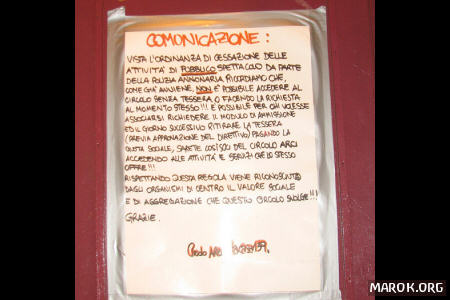 COMUNICAZIONE:
VISTA L'ORDINANZA DI CESSAZIONE DELLE
ATTIVITA' DI PUBBLICO SPETTACOLO DA PARTE
DELLA POLIZIA ANNONARIA RICORDIAMO CHE,
COME GIA' AVVIENE, NON E' POSSIBILE ACCEDERE AL
CIRCOLO SENZA TESSERA O FACENDO LA RICHIESTA
AL MOMENTO STESSO!!! E' POSSIBILE PER CHI VOLESSE
ASSOCIARSI RICHIEDERE IL MODULO DI AMMISSIONE
ED IL GIORNO SUCCESSIVO RITIRARE LA TESSERA
(PREVIA APPROVAZIONE DEL DIRETTIVO) PAGANDO LA
QUOTA SOCIALE, SARETE COSI' SOCI DEL CIRCOLO ARCI
ACCEDENDO ALLE ATTIVITA' E SERVIZI CHE LO STESSO
OFFRE!!!
RISPETTANDO QUESTA REGOLA VIENE RICONOSCIUTO
DAGLI ORGANISMI DI CENTRO IL VALORE SOCIALE
E DI AGGREGAZIONE CHE QUESTO CIRCOLO SVOLGE!!!
GRAZIE.
MAROK.ORG